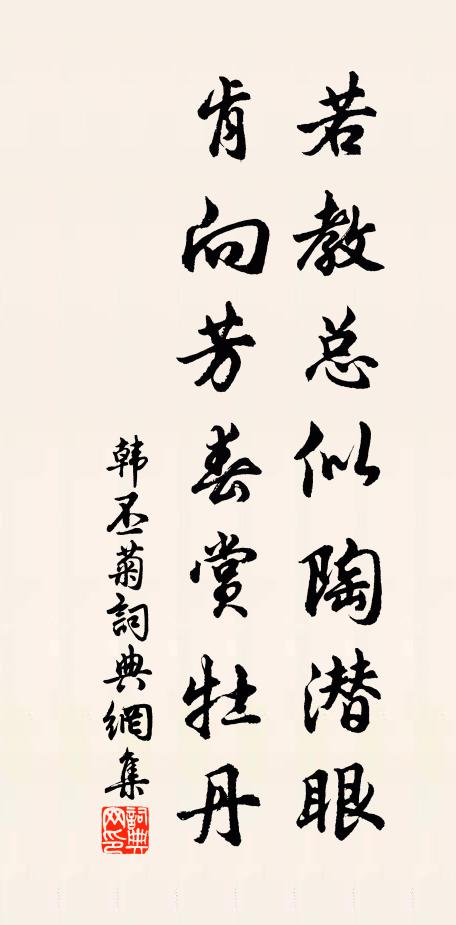 若教总似陶潜眼
肯向芳春赏牡丹
韩丕菊詞典網集
詞典网印